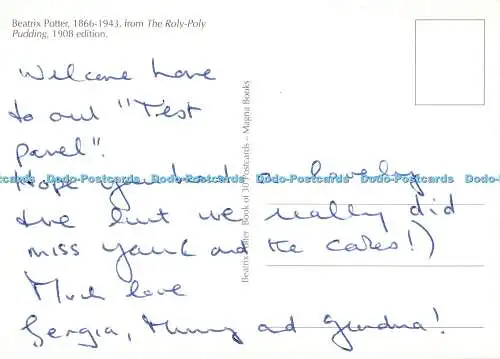 Beatrix Potter, 1866-1943, from The Roly-Poly
Pudding, 1908 edition.
Welcome home
to our "Test
panel".
Hope you had a lovely
time but we really did
miss you (and the cakes!)
Much love
Georgia, Mummy and Grandma!
Beatrix Potter Book of 30 Postcards – Magna Books
Dodo-Postcards.com Dodo-Postcards.com Dodo-Postcards.com Dodo-Postcards.com Dodo-Postcards.com